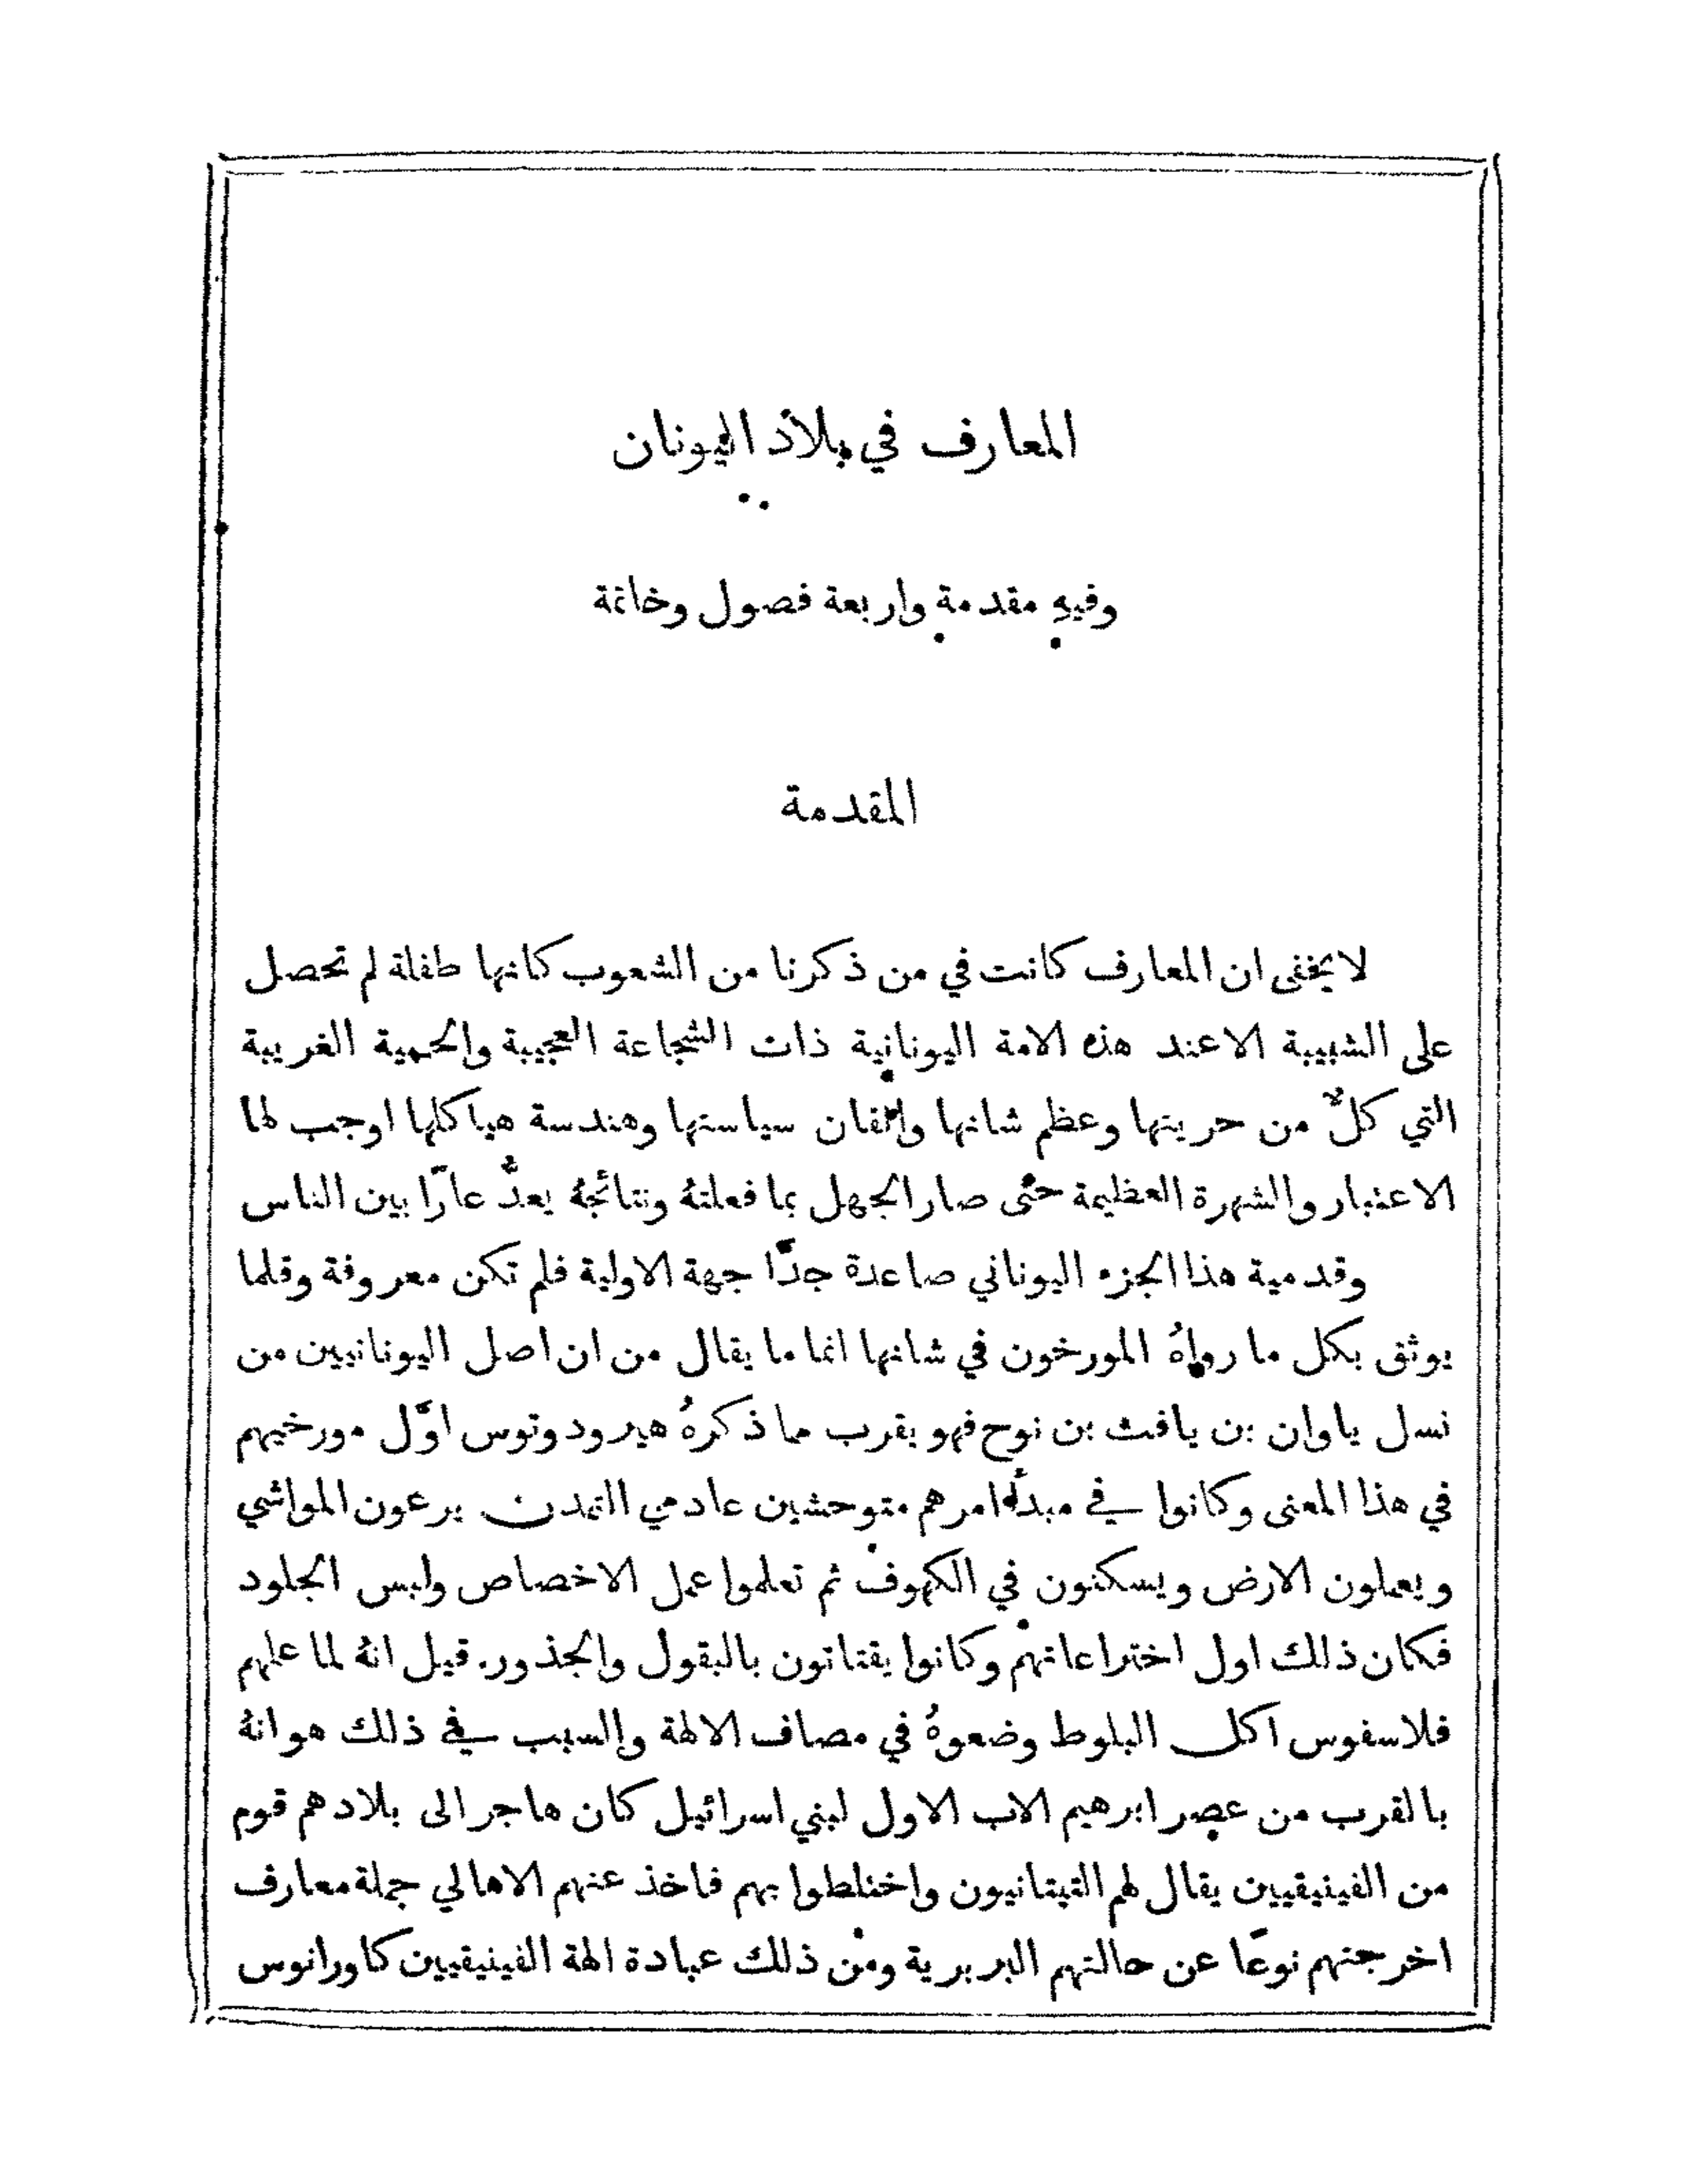 المعارف في بلاد اليونان
وفيهِ مقدمة واربعة فصول وخاتمة
المقدمة
لا يخفى ان المعارف كانت في من ذكرنا من الشعوب كانها طفلة لم تحصل
على الشبيبة الا عند هذه الامة اليونانية ذات الشجاعة العجيبة والحمية الغريبة
التي كلٌّ من حريتها وعظم شانها واتقان سياستها وهندسة هياكلها اوجب لها
الاعتبار والشهرة العظيمة حتى صار الجهل بما فعلتهُ ونتائجهُ يعدُّ عارًا بين الناس
وقدمية هذا الجزء اليوناني صاعدة جدًّا جهة الاولية فلم تكن معروفة وقلما
يوثق بكل ما رواهُ المورخون في شانها انما ما يقال من ان اصل اليونانيين من
نسل ياوان بن يافث بن نوح فهو يقرب مما ذكرهُ هيرودوتوس اوَّل مورخيهم
في هذا المعنى وكانوا في مبدأ امرهم متوحشين عادمي التمدن يرعون المواشي
ويعملون الارض ويسكنون في الكهوف ثم تعلموا عمل الاخصاص ولبس الجلود
فكان ذلك اول اختراعاتهم وكانوا يقتاتون بالبقول والجذور. قيل انهُ لما علمهم
فلاسفوس اكل البلوط وضعوهُ في مصاف الالهة والسبب في ذلك هو انهُ
بالقرب من عصر ابرهيم الاب الاول لبني اسرائيل كان هاجر الى بلادهم قوم
من الفينيقيين يقال لهم التيتانيون واختلطوا بهم فاخذ عنهم الاهالي جملة معارف
اخرجتهم نوعًا عن حالتهم البربرية ومن ذلك عبادة الهة الفينيقيين كاورانوس